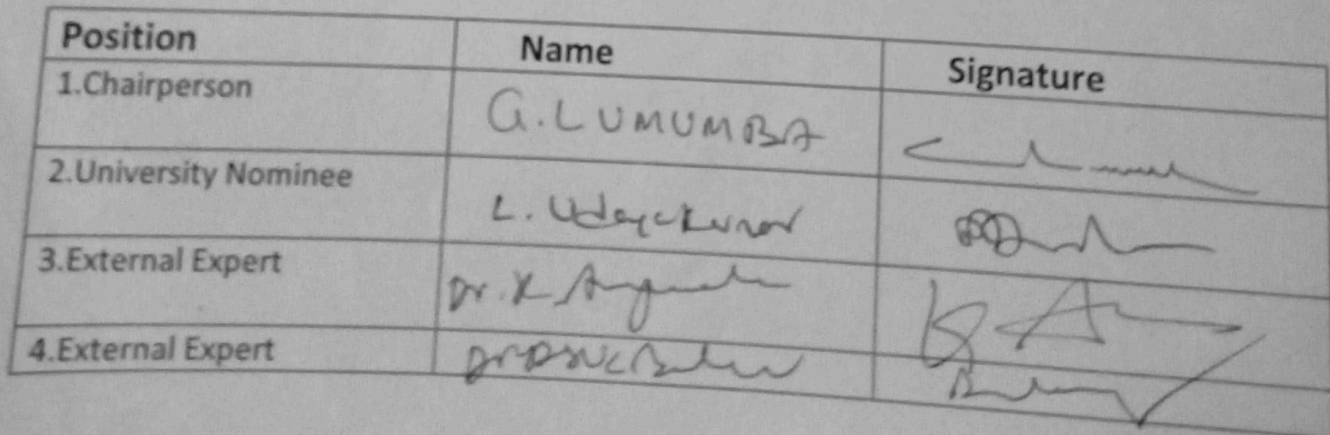 Position Name Signature
1.Chairperson G.LUMUMBA
2.University Nominee L. Udayakumar
3.External Expert Dr. K
4.External Expert Dr